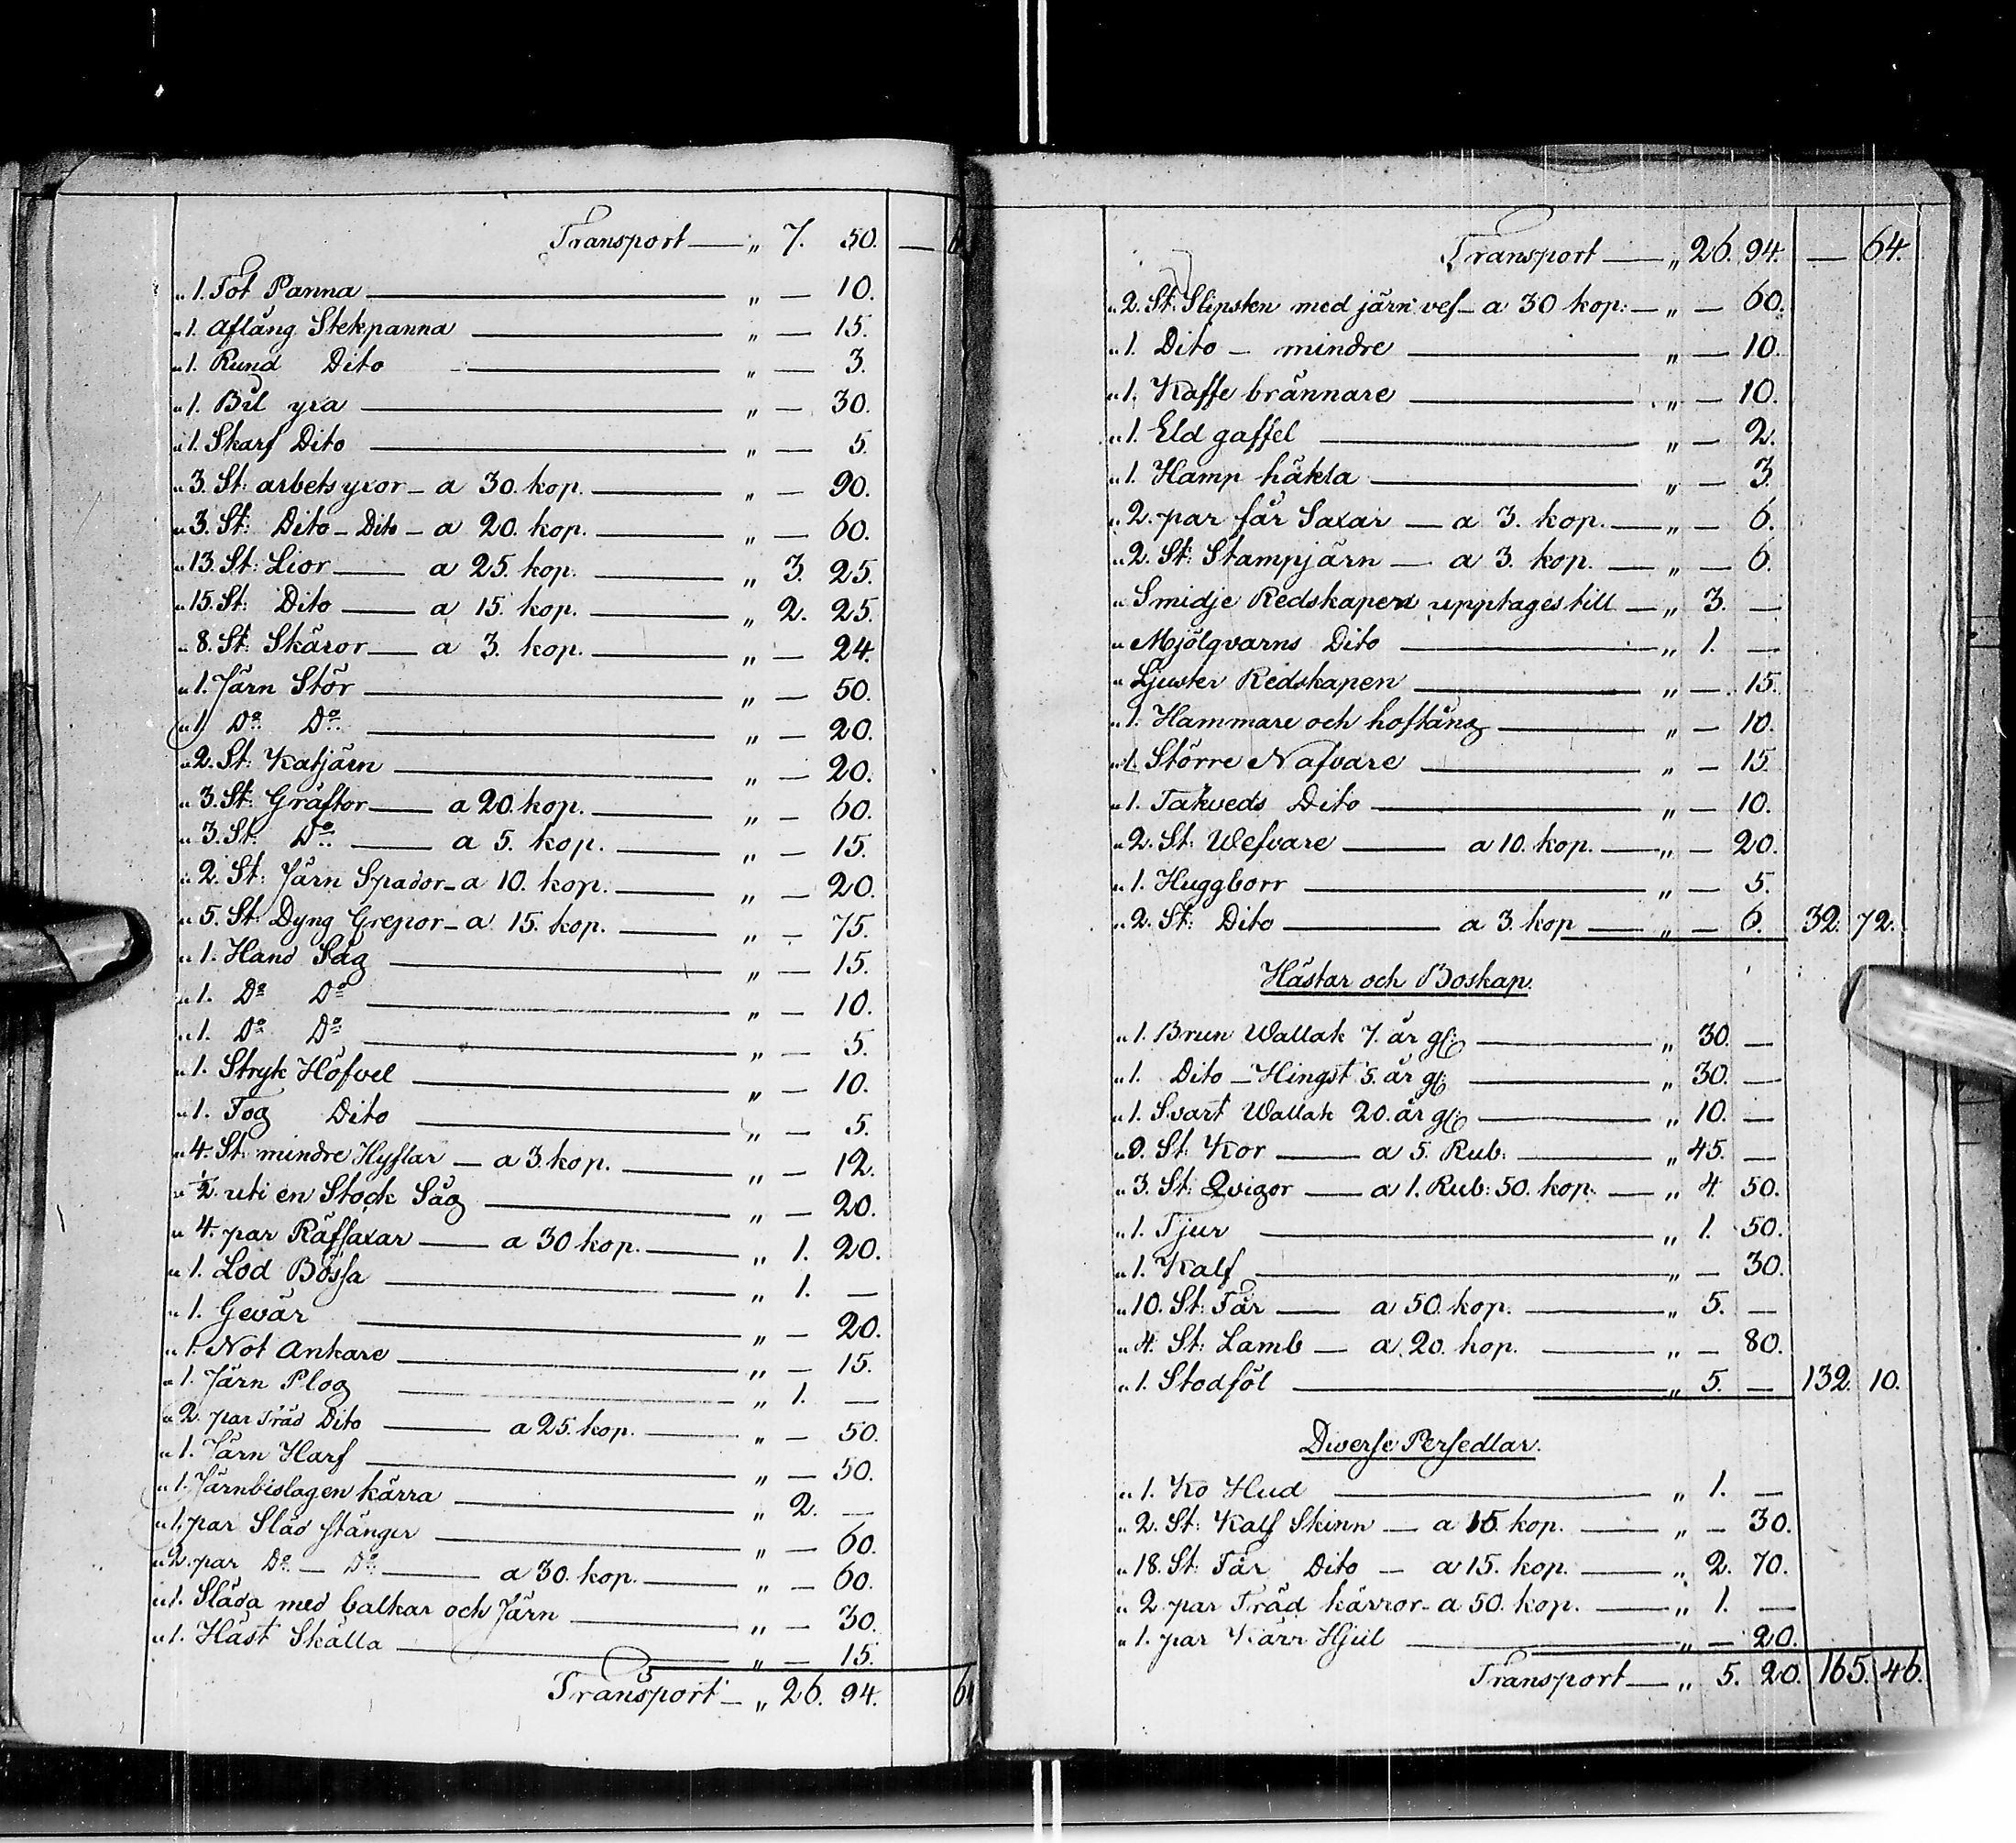 Transport — „ 7. 50. — 6
„ 1. Fot Panna — „ — 10.
„ 1. Aflång Stekpanna — „ — 15.
„ 1. Rund Dito — „ — 3.
„ 1. Bil yxa — „ — 30.
„ 1. Skarf Dito — „ — 5.
„ 3. St: arbets yxor — a 30. kop. — „ — 90.
„ 3. St: Dito — Dito — a 20. kop. — „ — 60.
„ 13. St: Lior — a 25. kop. — „ 3. 25.
„ 15. St: Dito — a 15. kop. — „ 2. 25.
„ 8. St: Skäror — a 3. kop. — „ — 24.
„ 1. Järn Stör — „ — 50.
„ 1. Do Do — „ — 20.
„ 2. St: Katjärn — „ — 20.
„ 3. St: Gräftor — a 20. kop. — „ — 60.
„ 3. St: Do — a 5. kop. — „ — 15.
„ 2. St: Järn Spador — a 10. kop. — „ — 20.
„ 5. St: Dyng Grepor — a 15. kop. — „ — 75.
„ 1. Hand Såg — „ — 15.
„ 1. Do Do — „ — 10.
„ 1. Do Do — „ — 5.
„ 1. Stryk Höfvel — „ — 10.
„ 1. Fog Dito — „ — 5.
„ 4. St: mindre Hyflar — a 3. kop. — „ — 12.
„ 1/2 uti en Stock Såg — „ — 20.
„ 4. par Räfsaxar — a 30 kop. — „ 1. 20.
„ 1. Lod Bössa — „ 1. —
„ 1. Gevär — „ — 20.
„ 1. Not Ankare — „ — 15.
„ 1. Järn Plog — „ 1. —
„ 2. par Träd Dito — a 25. kop. — „ — 50.
„ 1. Järn Harf — „ — 50.
„ 1. Järnbislagen kärra — „ 2. —
„ 1. par Släd stänger — „ — 60.
„ 2. par Do — Do — a 30. kop. — „ — 60.
„ 1. Släda med balkar och Järn — „ — 30.
„ 1. Häst Skälla — „ — 15.
Transport — „ 26. 94. 64
Transport — „ 26. 94. — 64.
„ 2. St: Slipsten med järn vef — a 30 kop: — „ — 60.
„ 1. Dito — mindre — „ — 10.
„ 1. Kaffe brännare — „ — 10.
„ 1. Eld gaffel — „ — 2.
„ 1. Hamp häkla — „ — 3.
„ 2. par får Saxar — a 3. kop. — „ — 6.
„ 2. St: Stampjärn — a 3. kop. — „ — 6.
„ Smidje Redskapen upptages till — „ 3. —
„ Mjölqvarns Dito — „ 1. —
„ Ljuster Redskapen — „ — 15.
„ 1. Hammare och hoftång — „ — 10.
„ 1. Större Nafvare — „ — 15.
„ 1. Takveds Dito — „ — 10.
„ 2. St: Wefvare — a 10. kop. — „ — 20.
„ 1. Huggborr — „ — 5.
„ 2. St: Dito — a 3. kop — „ — 6. 32. 72.
Hästar och Boskap.
„ 1. Brun Wallak 7. år gl: — „ 30. —
„ 1. Dito — Hingst 5. år gl: — „ 30. —
„ 1. Svart Wallak 20. år gl: — „ 10. —
„ 9. St: Kor — a 5. Rub: — „ 45. —
„ 3. St: Qvigor — a 1. Rub: 50. kop. — „ 4. 50.
„ 1. Tjur — „ 1. 50.
„ 1. Kalf — „ — 30.
„ 10. St: Får — a 50. kop. — „ 5. —
„ 4. St: Lamb — a 20. kop. — „ — 80.
„ 1. Stodföl — „ 5. — 132. 10.
Diverse Persedlar.
„ 1. Ko Hud — „ 1. —
„ 2. St: Kalf Skinn — a 15. kop. — „ — 30.
„ 18. St: Får Dito — a 15. kop. — „ 2. 70.
„ 2. par Träd kärror — a 50. kop. — „ 1. —
„ 1. par Kärr Hjul — „ — 20.
Transport — „ 5. 20. 165. 46.